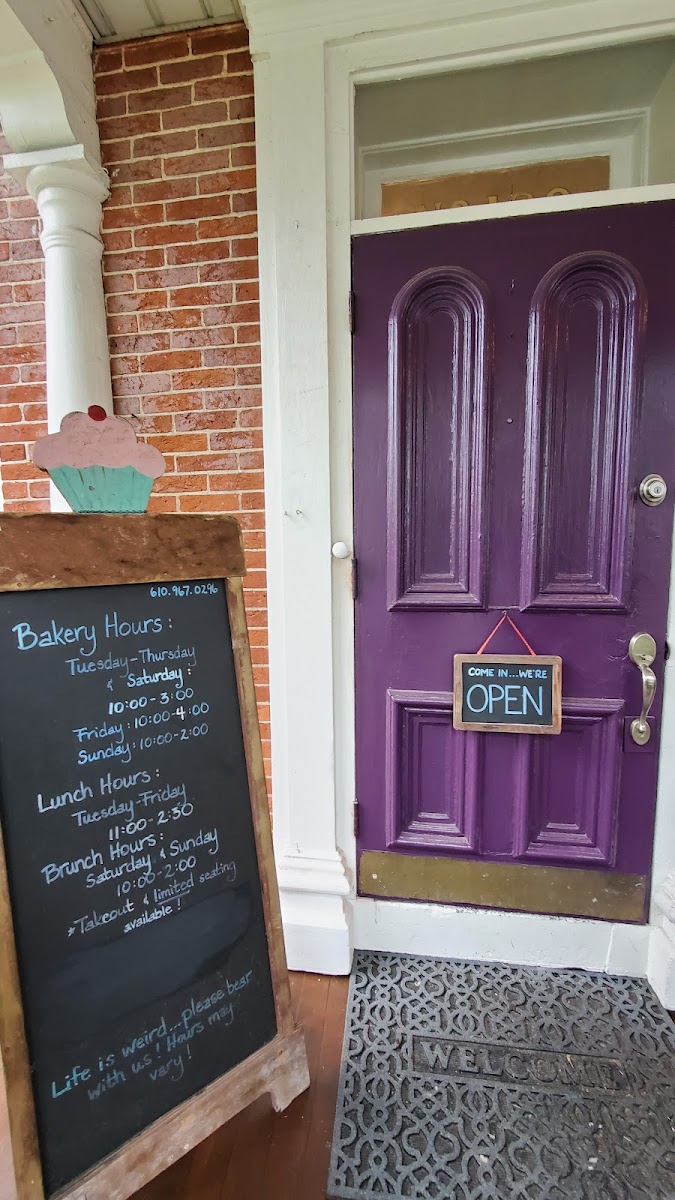 610.967.0296
Bakery Hours:
Tuesday-Thursday
& Saturday:
10:00-3:00
Friday: 10:00-4:00
Sunday: 10:00-2:00
Lunch Hours:
Tuesday-Friday
11:00-2:30
Brunch Hours:
Saturday & Sunday
10:00-2:00
*Takeout & limited seating
available!
Life is weird...please bear
with us! Hours may
vary!
COME IN...WE'RE
OPEN
WELCOME